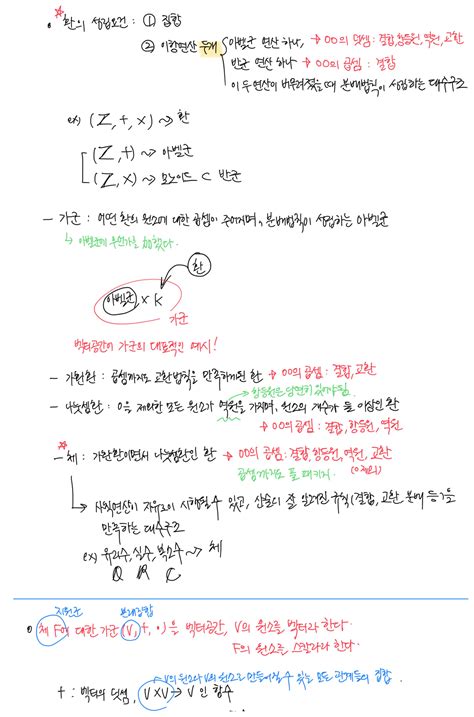 환의 성립요건 : ① 집합
② 이항연산 두개 아벨군 연산 하나, → OO의 덧셈 : 결합, 항등원, 역원, 교환
반군 연산 하나 → OO의 곱셈 : 결합
이 두 연산이 버무려졌을 때 분배법칙이 성립하는 대수구조
ex) (Z, +, ×) ~> 환
(Z, +) ~> 아벨군
(Z, ×) ~> 모노이드 ⊂ 반군
- 가군 : 어떤 환의 원소에 대한 곱셈이 주어지며, 분배법칙이 성립하는 아벨군
↳ 아벨군에 무언가를 첨했다.
환
아벨군, × K
가군
벡터공간이 가군의 대표적인 예시!
- 가환환 : 곱셈까지도 교환법칙을 만족하게된 환 → OO의 곱셈 : 결합, 교환
→ 항등원은 당연히 있어야됨.
- 나눗셈환 : 0을 제외한 모든 원소가 역원을 가지며, 원소의 개수가 둘 이상인 환
→ OO의 곱셈 : 결합, 항등원, 역원
- 체 : 가환환이면서 나눗셈환인 환 → OO의 곱셈 : 결합, 항등원, 역원, 교환
곱셈까지도 풀패키지.
↳ 사칙연산이 자유로이 시행될 수 있고, 산술의 잘 알려진 규칙(결합, 교환, 분배 등)을
만족하는 대수구조
ex) 유리수, 실수, 복소수 ~> 체
Q R C
체 F에 대한 가군 (V, +, •)을 벡터공간, V의 원소를 벡터라 한다.
F의 원소를 스칼라라 한다.
V의 원소와 V의 원소로 만들어질 수 있는 모든 관계들의 집합.
+ : 벡터의 덧셈, V×V → V 인 함수